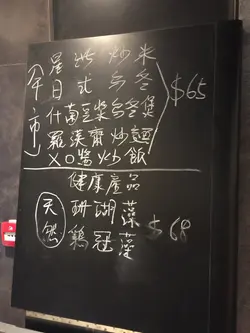 星洲炒米
日式乌冬
什菌豆浆乌冬煲
羅漢齋炒麵
XO醬炒飯
(午市)
$65
健康產品
天然
珊瑚藻
鷄冠藻
$68